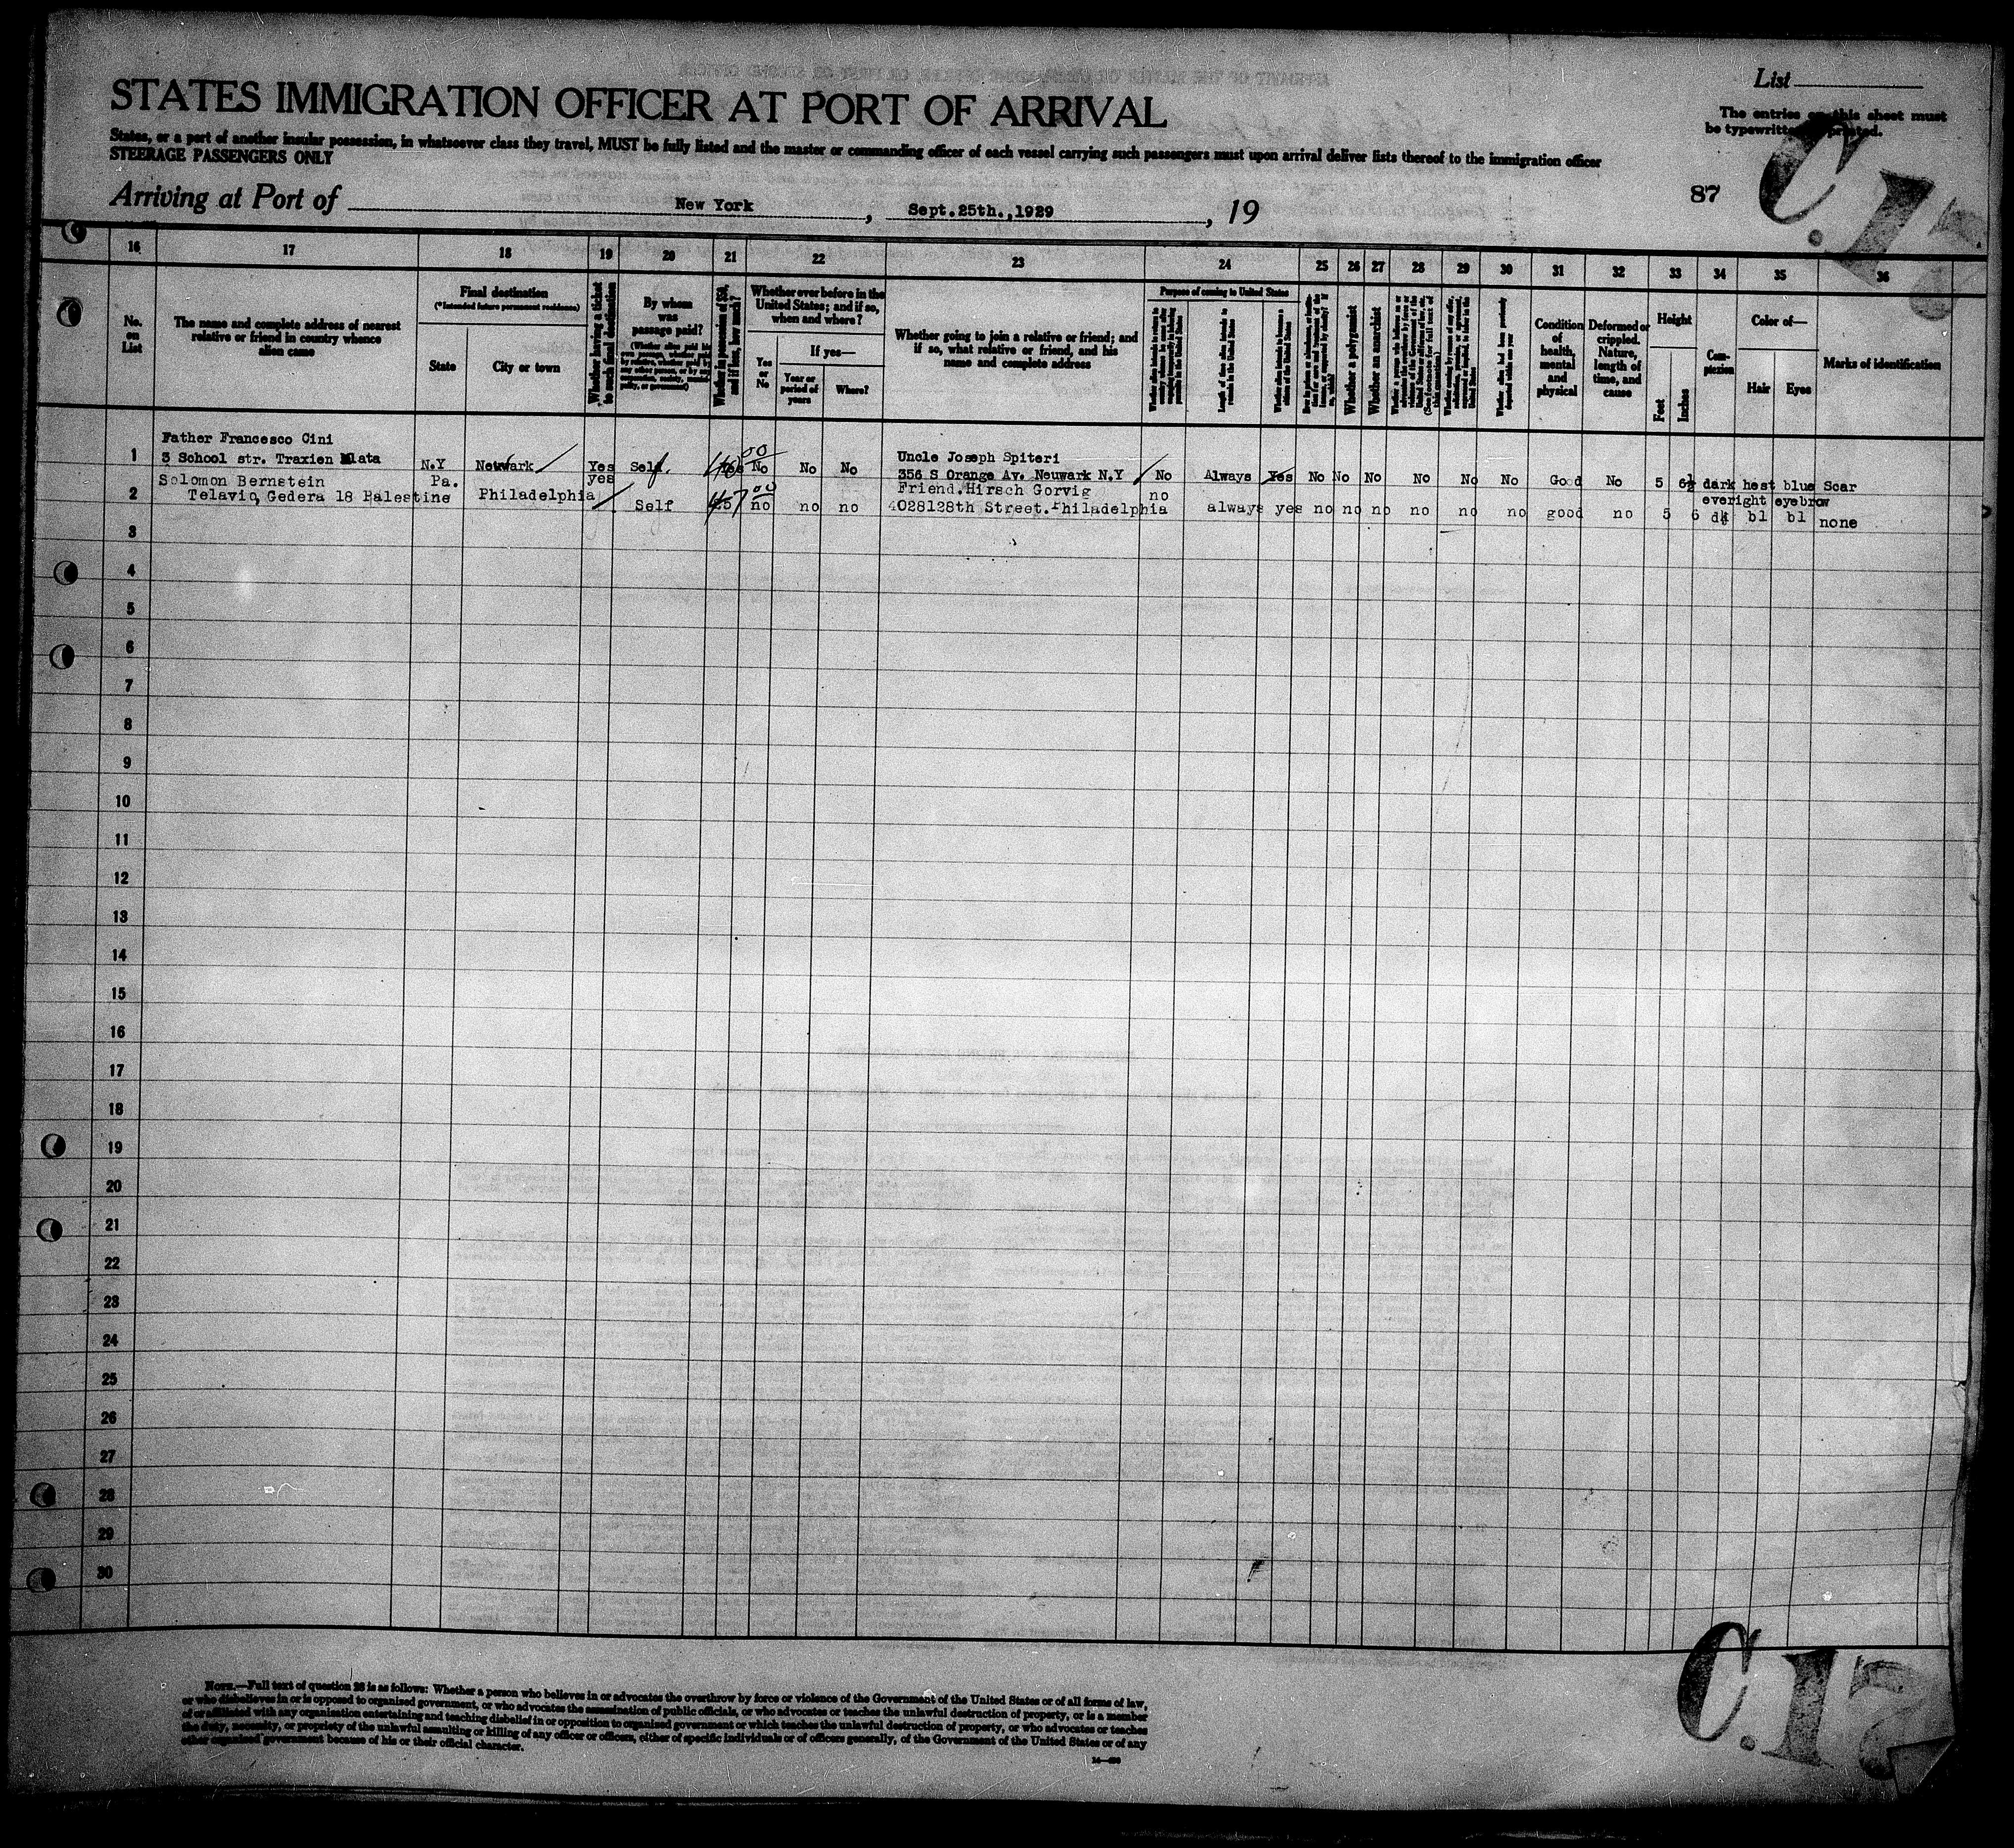 List
STATES IMMIGRATION OFFICER AT PORT OF ARRIVAL
The entries on this sheet must
be typewritten or printed.
States, or a port of another insular possession, in whatsoever class they travel, MUST be fully listed and the master or commanding officer of each vessel carrying such passengers must upon arrival deliver lists thereof to the immigration officer
STEERAGE PASSENGERS ONLY
C.17
87
Arriving at Port of New York, Sept.25th.,1929, 19
16 17 18 19 20 21 22 23 24 25 26 27 28 29 30 31 32 33 34 35 36
No.
on
List
The name and complete address of nearest
relative or friend in country whence
alien came
Final destination
(*Intended future permanent residence)
State
City or town
Whether having a ticket
to such final destination
By whom
was
passage paid?
Whether in possession of $50,
and if less, how much?
Whether ever before in the
United States; and if so,
when and where?
Yes
or
No
If yes—
Year or
period of
years
Where?
Whether going to join a relative or friend; and
if so, what relative or friend, and his
name and complete address
Purpose of coming to United States
Length of time alien intends to
remain in the United States
Whether alien intends to become a
citizen of the United States
Whether a polygamist
Whether an anarchist
Condition
of
health,
mental
and
physical
Deformed or
crippled.
Nature,
length of
time, and
cause
Height
Feet
Inches
Com-
plexion
Color of—
Hair
Eyes
Marks of identification
Father Francesco Cini
1 3 School str. Traxien Mlata N.Y Neuwark Yes Self 40 00 Yes No No No
Uncle Joseph Spiteri
356 S Orange Av. Neuwark N.Y No Always Yes No No No No No No Good No 5 6½ dark hest blue Scar
everight eyebrow
Solomon Bernstein Pa. yes
2 Telavio, Gedera 18 Palestine Philadelphia Self 457 00 no no no
Friend.Hirsch Gorvig no
4028128th Street.Philadelphia always yes no no no no no no good no 5 6 dk bl bl none
3
4
5
6
7
8
9
10
11
12
13
14
15
16
17
18
19
20
21
22
23
24
25
26
27
28
29
30
NOTE.—Full text of question 28 is as follows: Whether a person who believes in or advocates the overthrow by force or violence of the Government of the United States or of all forms of law,
or who disbelieves in or is opposed to organized government, or who advocates the assassination of public officials, or who advocates or teaches the unlawful destruction of property, or is a member
of or affiliated with any organization entertaining and teaching disbelief in or opposition to organized government or which teaches the unlawful destruction of property, or who advocates or teaches
the duty, necessity, or propriety of the unlawful assaulting or killing of any officer or officers, either of specific individuals or of officers generally, of the Government of the United States or of any
other organized government because of his or their official character.
C.17